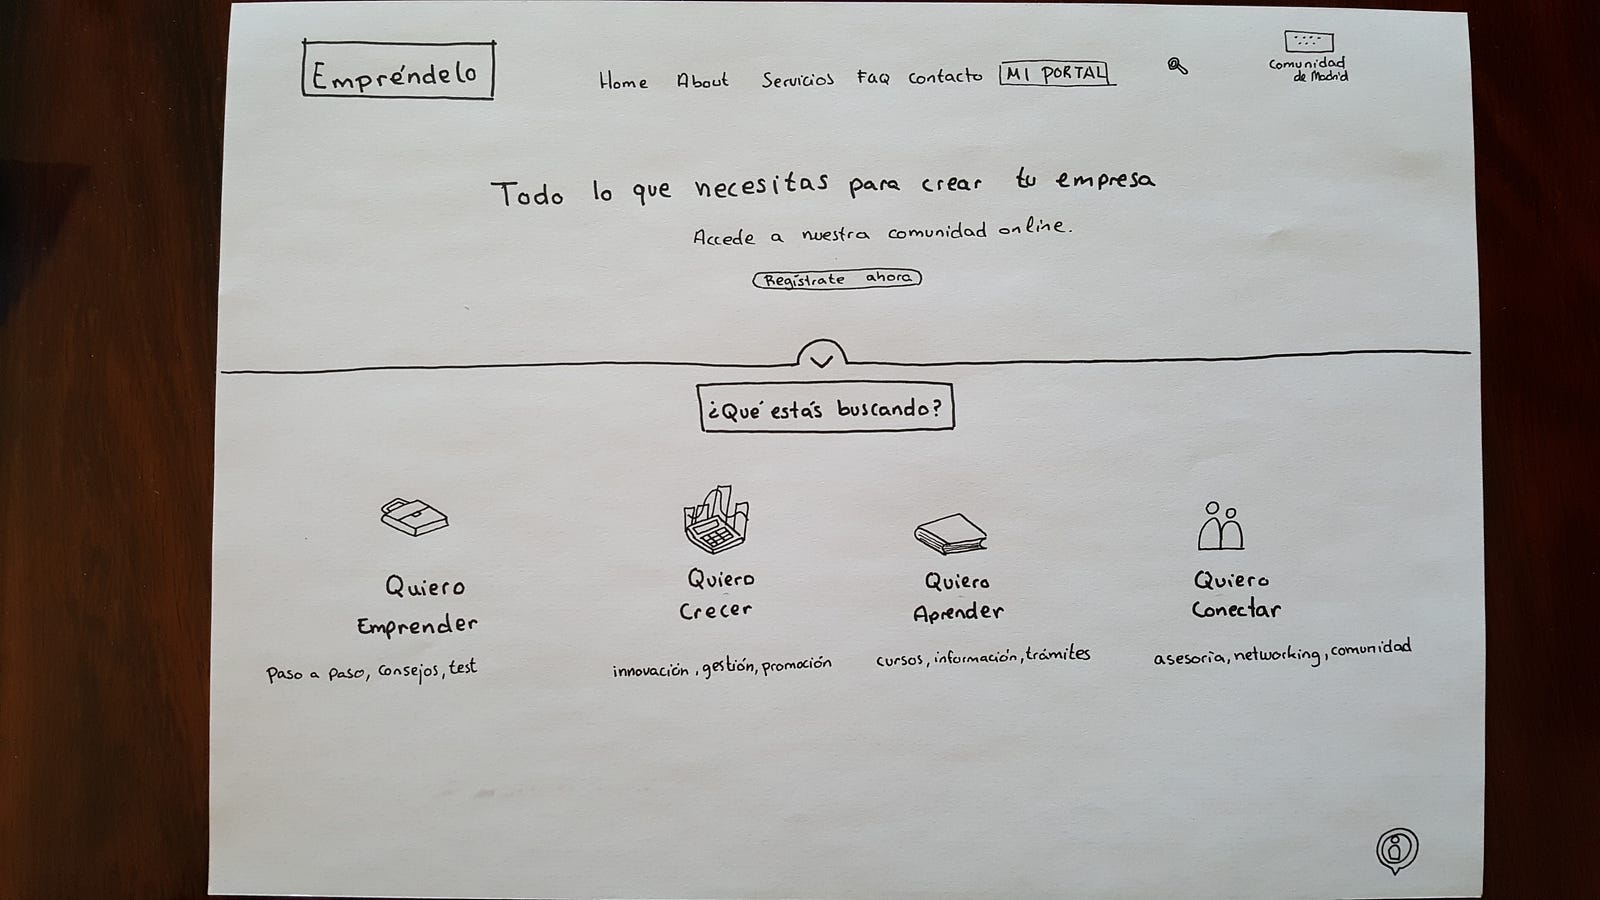 Empréndelo
Home About Servicios Faq Contacto MI PORTAL
Comunidad
de Madrid
Todo lo que necesitas para crear tu empresa
Accede a nuestra comunidad online.
Regístrate ahora
¿Qué estás buscando?
Quiero
Emprender
Paso a paso, consejos, test
Quiero
Crecer
innovación, gestión, promoción
Quiero
Aprender
cursos, información, trámites
Quiero
Conectar
asesoría, networking, comunidad